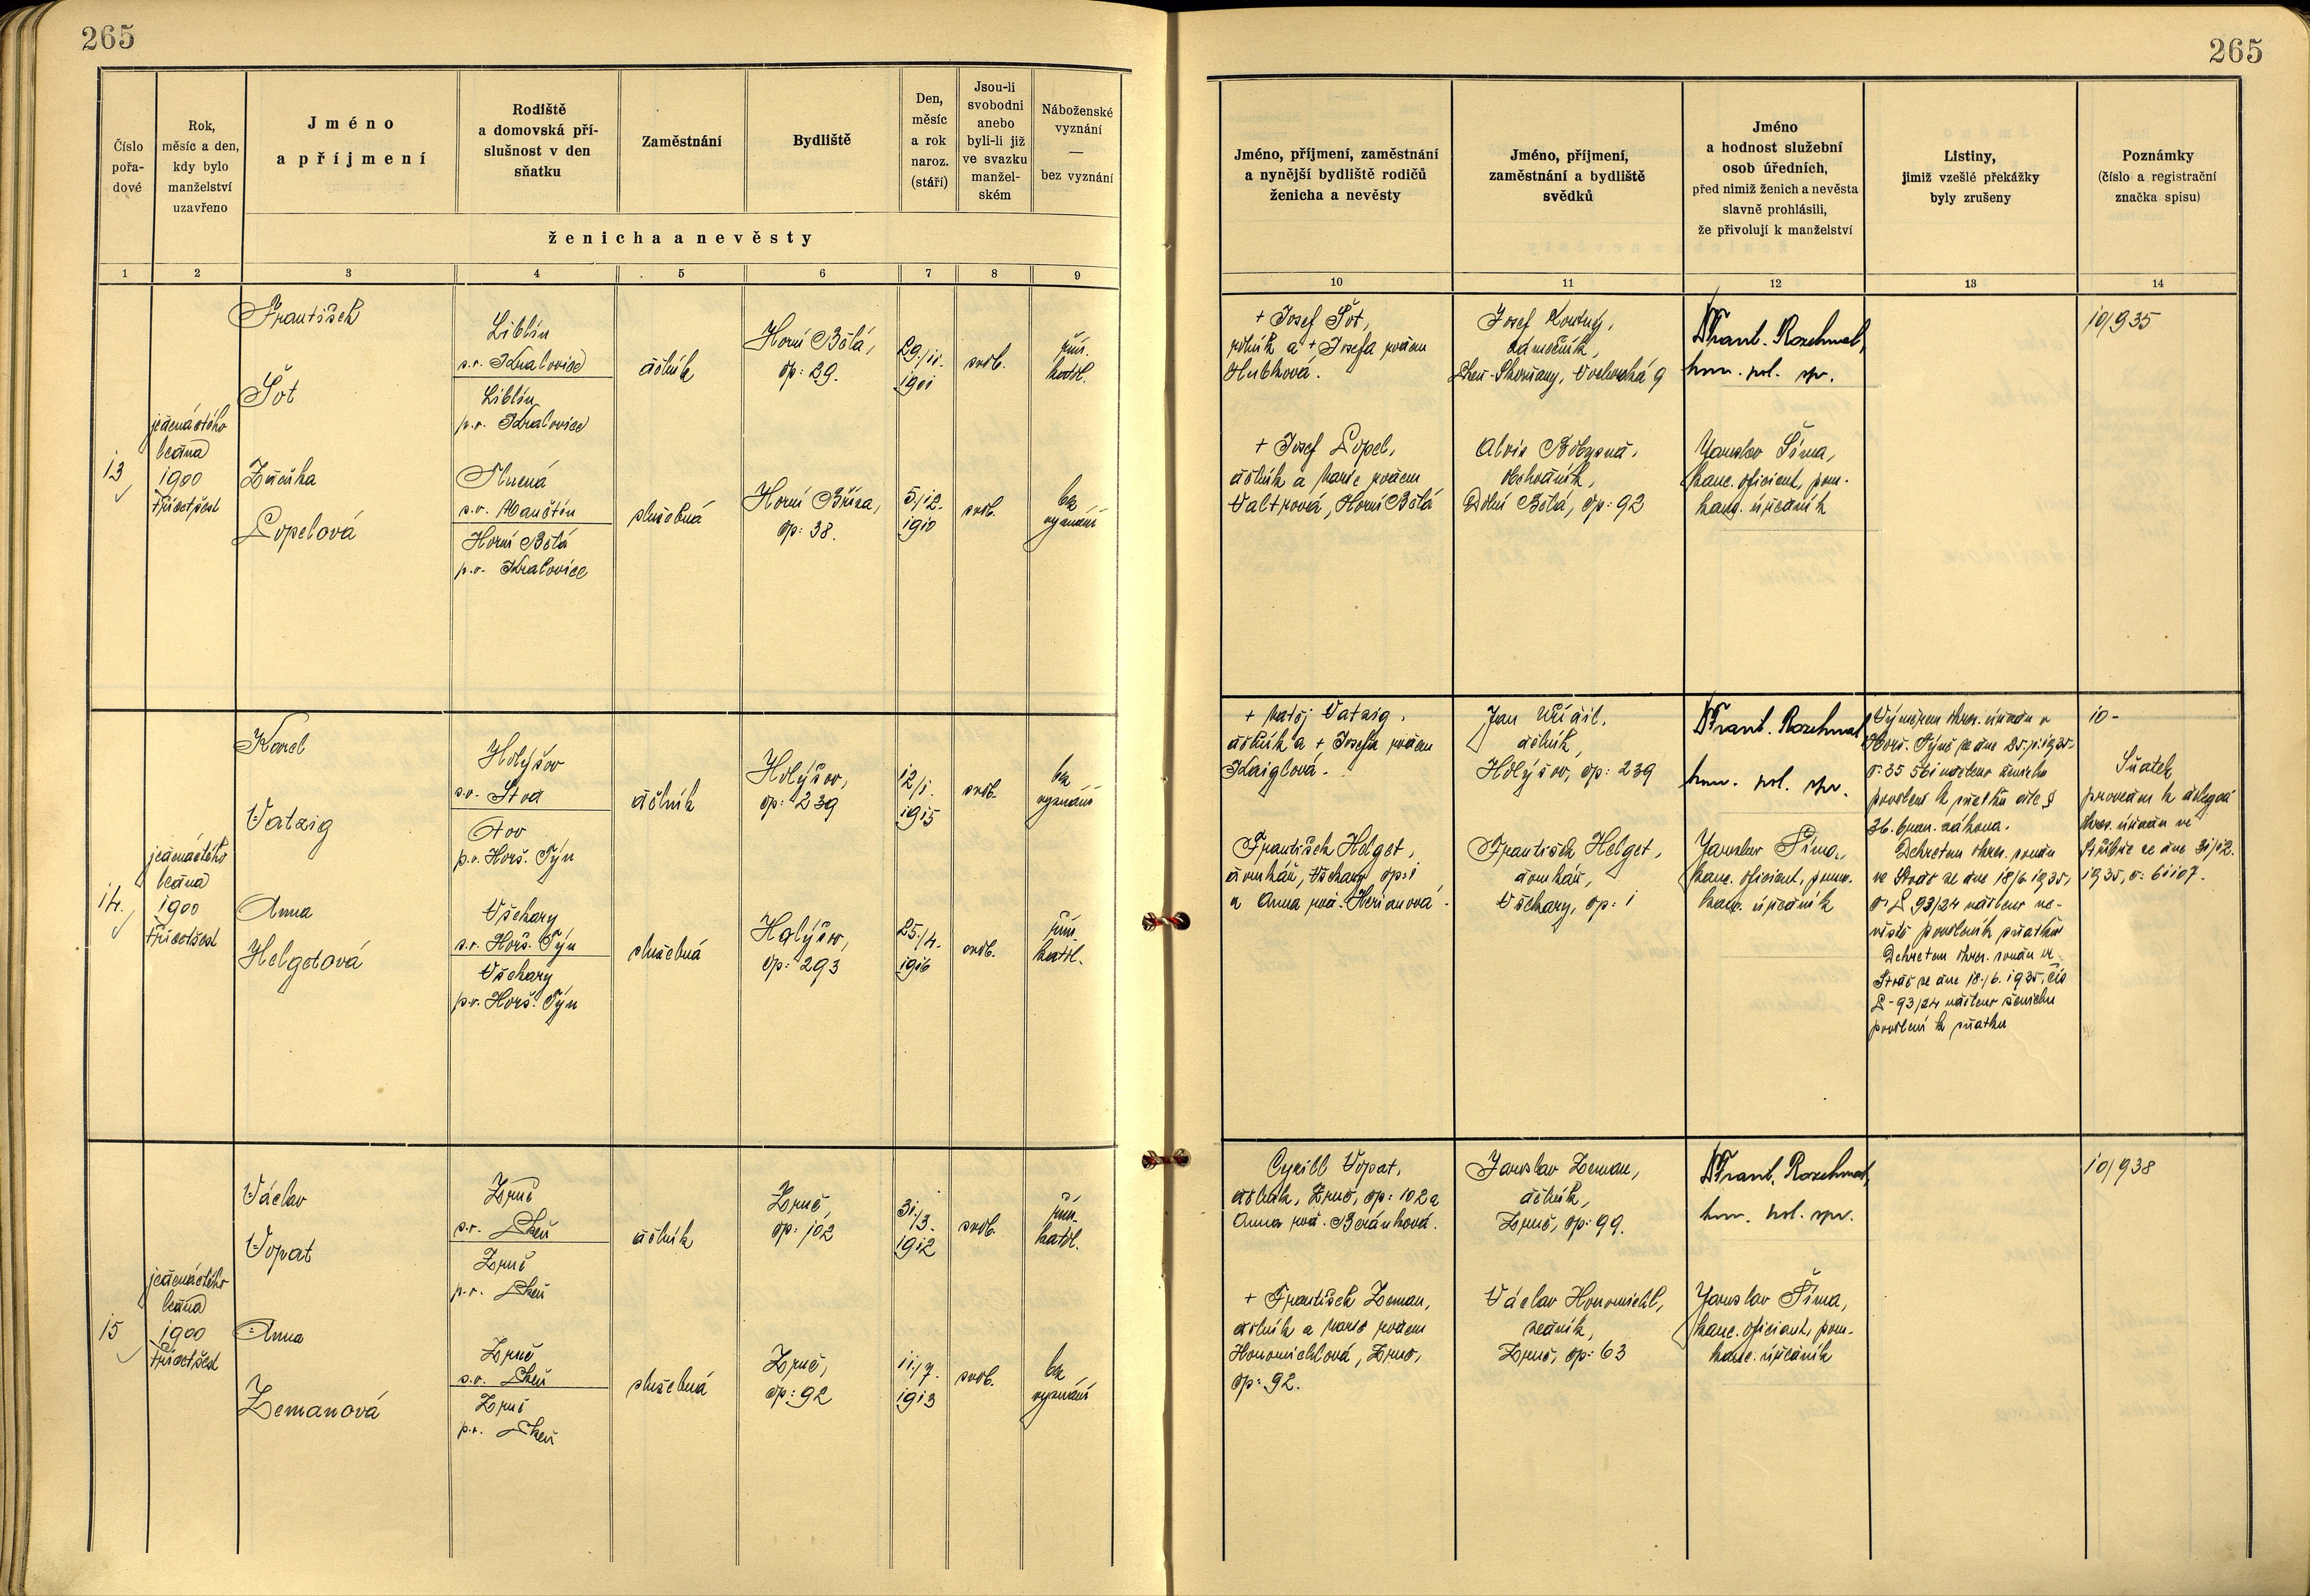 265
265
Číslo
pořa-
dové
Rok,
měsíc a den,
kdy bylo
manželství
uzavřeno
Jméno
a příjmení
Rodiště
a domovská pří-
slušnost v den
sňatku
Zaměstnání
Bydliště
Den,
měsíc
a rok
naroz.
(stáří)
Jsou-li
svobodni
anebo
byli-li již
ve svazku
manžel-
ském
Náboženské
vyznání
—
bez vyznání
ženicha a nevěsty
Jméno, příjmení, zaměstnání
a nynější bydliště rodičů
ženicha a nevěsty
Jméno, příjmení,
zaměstnání a bydliště
svědků
Jméno
a hodnost služební
osob úředních,
před nimiž ženich a nevěsta
slavně prohlásili,
že přivolují k manželství
Listiny,
jimiž vzešlé překážky
byly zrušeny
Poznámky
(číslo a registrační
značka spisu)
1 2 3 4 5 6 7 8 9
10 11 12 13 14
13
jedenáctého
ledna
1900
třicetšest
František
Šot
Liblín
s.o. Kralovice
Liblín
p.o. Kralovice
dělník
Horní Bělá,
čp: 29.
29./11.
1901
svob.
řím.
katol.
Lopelová
s.o. Manětín
Horní Bělá
p.o. Kralovice
služebná
Horní Bříza,
čp: 38.
5./12.
1910
svob.
bez
vyznání
+ Josef Šot,
rolník a + Josefa rodem
Hubková.
+ Josef Lopel,
dělník a Marie rodem
Valtrová, Horní Bělá
Josef
zámečník,
Plzeň-Skvrňany, 9
Alois
obchodník,
Dolní Bělá, čp: 92
Dr Frant. Rozehnal,
kom. pol. spr.
Jaroslav Šíma,
kanc. oficiant, pom.
kanc. úředník
10/935
14.
jedenáctého
ledna
1900
třicetšest
Karel
Vatzig
Holýšov
s.o. Stod
p.o. Horš. Týn
dělník
Holýšov,
čp: 239
12/1.
1915
svob.
bez
vyznání
Anna
Helgetová
Všekary
s.o. Horš. Týn
Všekary
p.o. Horš. Týn
služebná
Holýšov,
čp: 293
25./4.
1916
svob.
řím.
katol.
+ Matěj Vatzig,
dělník a + Josefa rodem
Kaiglová.
František Helget,
domkář, Všekary čp: 1
a Anna rod.
Jan
dělník,
Holýšov, čp: 239
František Helget,
domkář,
Všekary, čp: 1
Dr Frant. Rozehnal,
kom. pol. spr.
Jaroslav Šíma,
kanc. oficiant, pom.
kanc. úředník
Výměrem okres. úřadu v
Horš. Týně ze dne
č: 35 561 uděleno ženichu
povolení k sňatku dle §
36. bran. zákona.
Dekretem okres. soudu
ve Stodě ze dne 18/6. 1935,
č: L 93/24 uděleno ne-
věstě povolení k sňatku
Dekretem okres. soudu ve
Stodě ze dne 18./6. 1935, čís
L-93/24 uděleno ženichu
povolení k sňatku
10-
Sňatek
proveden k delegaci
okres. úřadu ve
Stříbře ze dne 31/12.
1935, č: 61107.
15
jedenáctého
ledna
1900
třicetšest
Václav
Vopat
Zruč
s.o. Plzeň
Zruč
p.o. Plzeň
dělník
Zruč,
čp: 102
31./3.
1912
svob.
řím.
katol.
Anna
Zemanová
Zruč
s.o. Plzeň
Zruč
p.o. Plzeň
služebná
Zruč,
čp: 92
11./7.
1913
svob.
bez
vyznání
Cyrill Vopat,
dělník, Zruč, čp: 102 a
Anna rod. Beránková.
+ František Zeman,
dělník a Marie rodem
Honomichlová, Zruč,
čp: 92.
Jaroslav Zeman,
dělník,
Zruč, čp: 99.
Václav Honomichl,
zedník,
Zruč, čp: 63
Dr Frant. Rozehnal,
kom. pol. spr.
Jaroslav Šíma,
kanc. oficiant, pom.
kanc. úředník
10/938